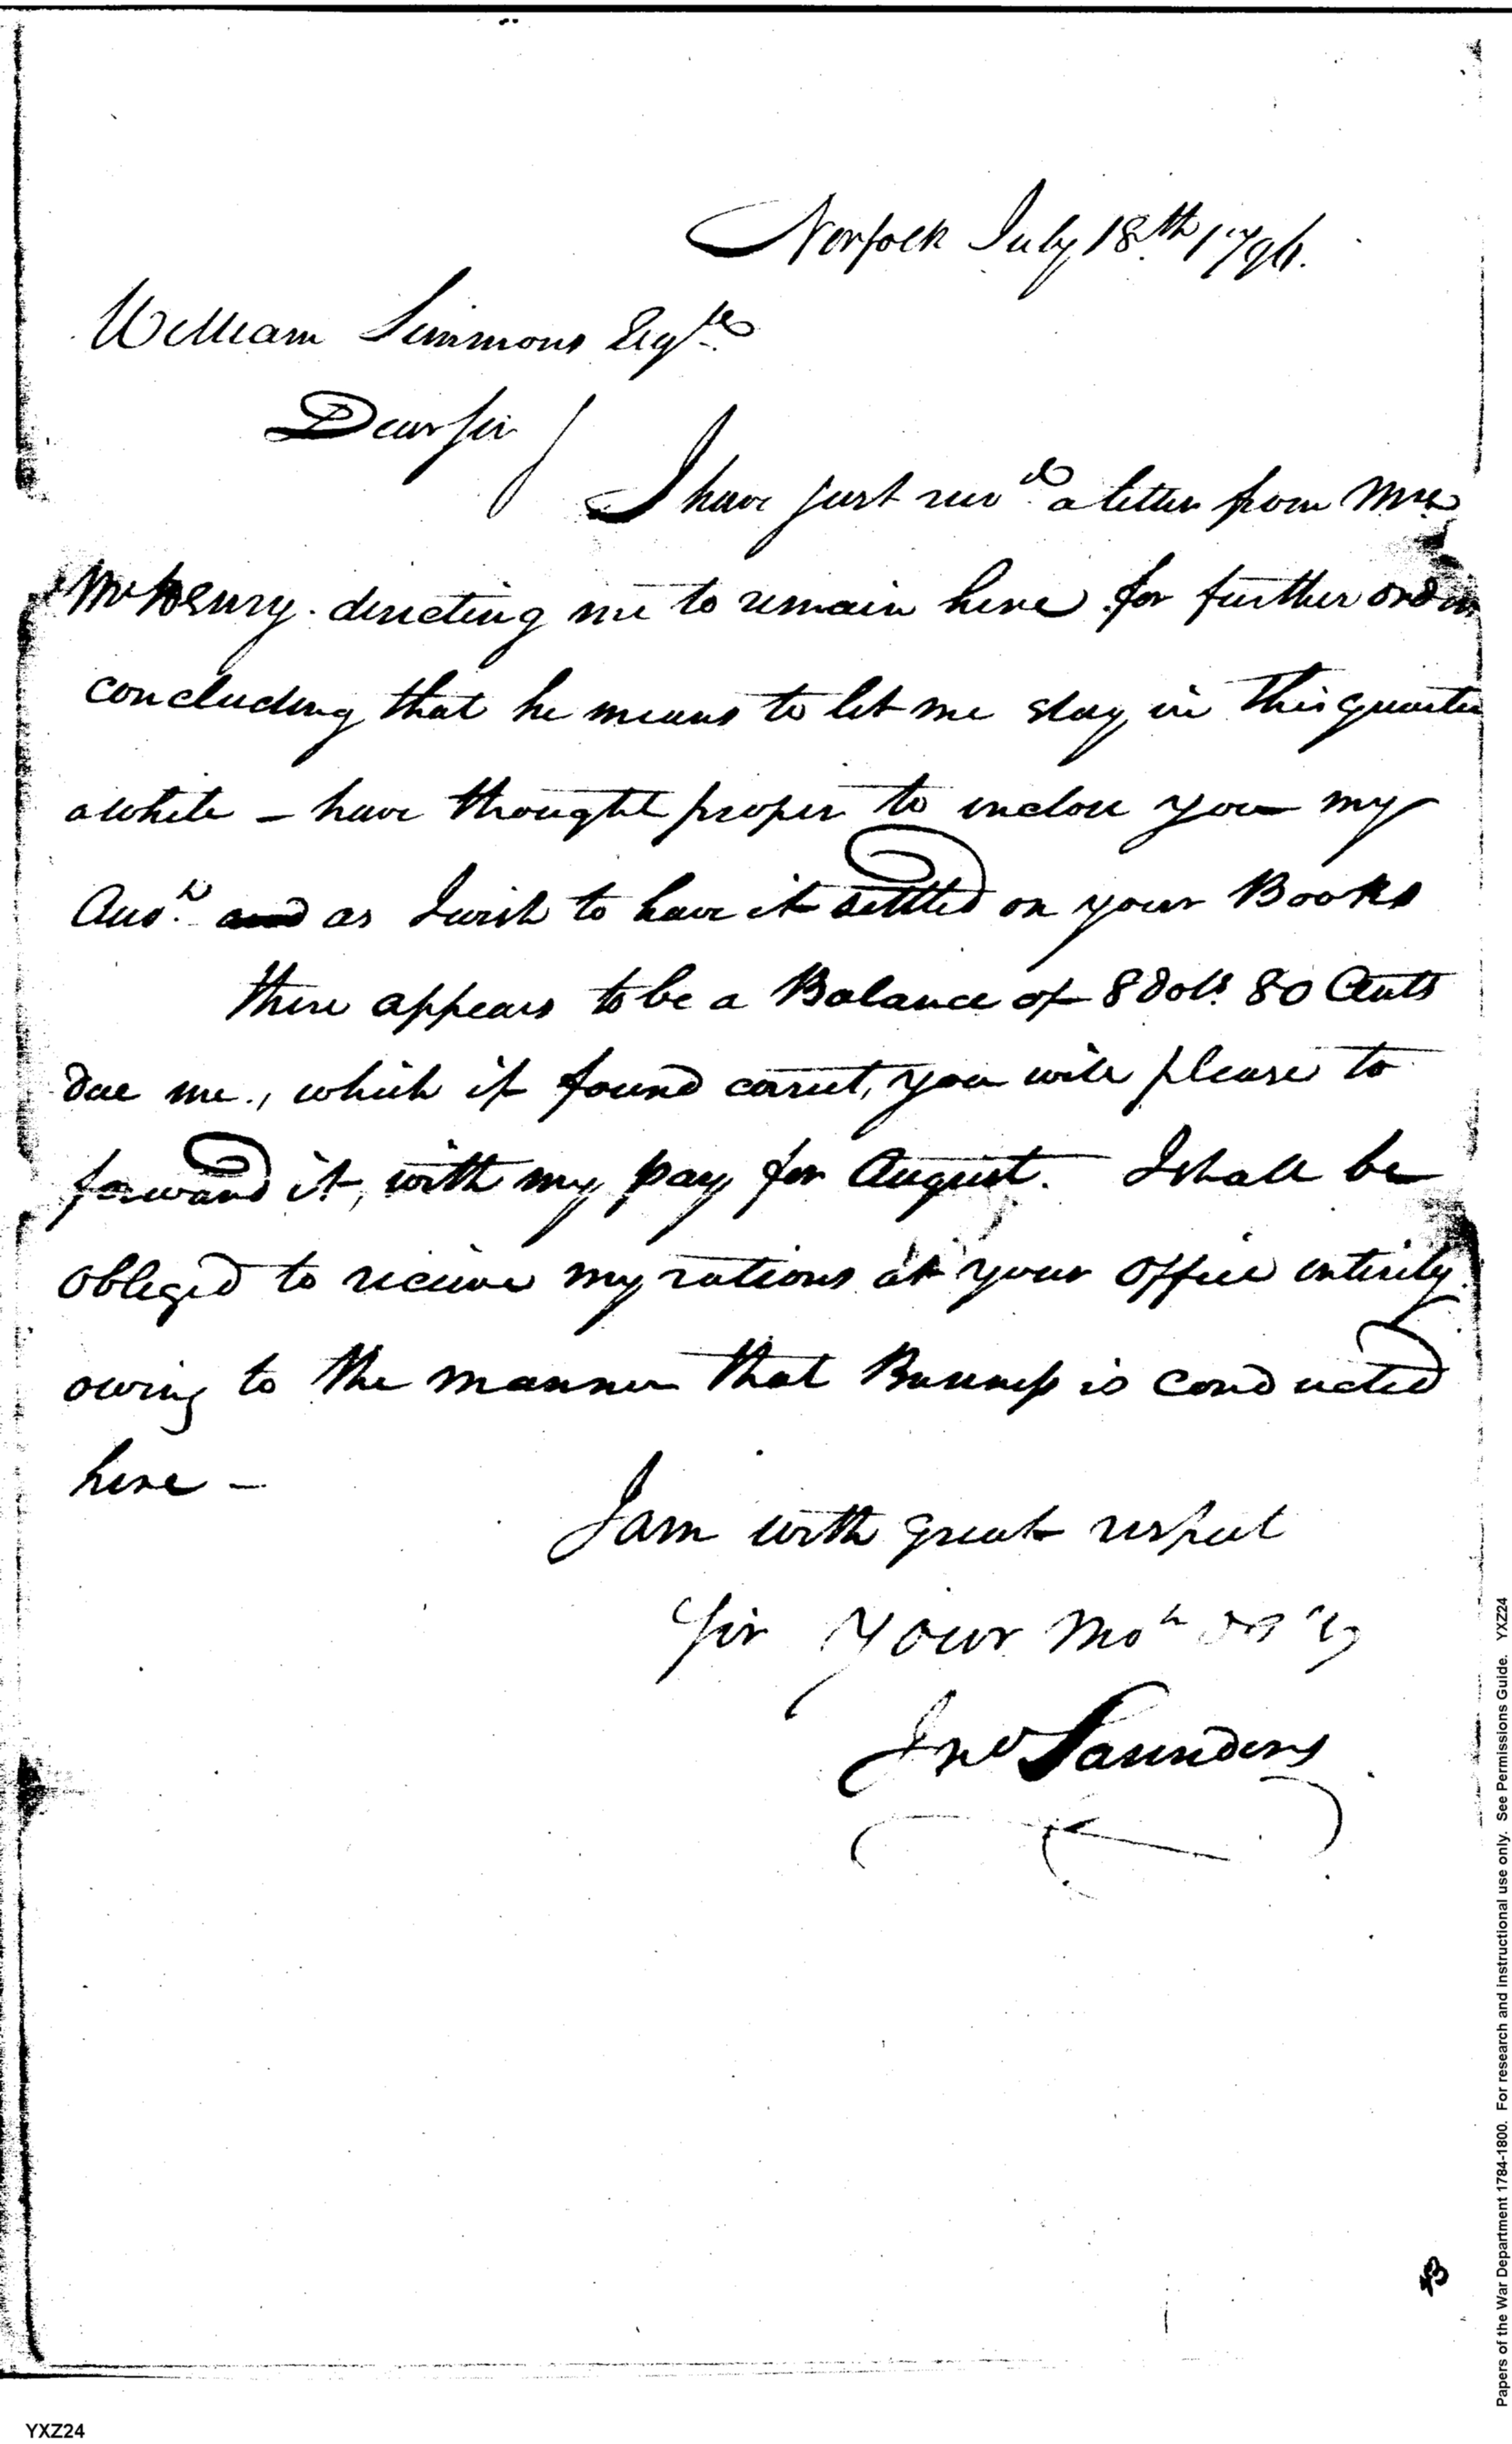 Norfolk July 18th 1796.
William Simmons Esqre
Dear Sir
I have just recd a letter from Mr
McHenry directing me to remain here for further orders
concluding that he means to let me stay in this quarter
a while – have thought proper to inclose you my
Acct. and as I wish to have it settled on your Books
there appears to be a Balance of 8 dols. 80 Cents
due me, which if found correct, you will please to
forward it, with my pay for August. I shall be
obliged to recieve my rations at your Office entirely
owing to the manner that Buisness is conducted
here –
I am with great respect
Sir Your Mot
Jno Saunders
Papers of the War Department 1784-1800. For research and instructional use only. See Permissions Guide. YXZ24
YXZ24